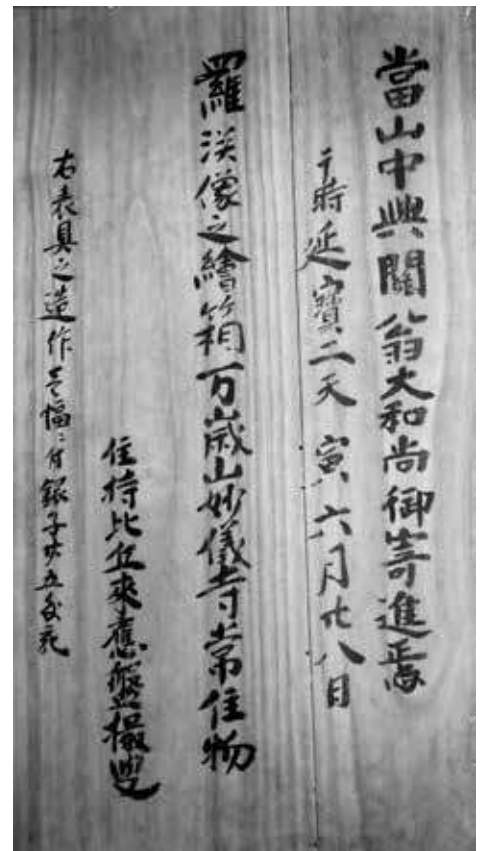 當山中興關翁大和尚御寄進焉
于時延寶二天 寅六月廿八日
羅漢像之繪箱万歳山妙儀寺常住物
住持比丘來應盤叟
右表具之造作壱幅ニ付銀子廿五匁宛